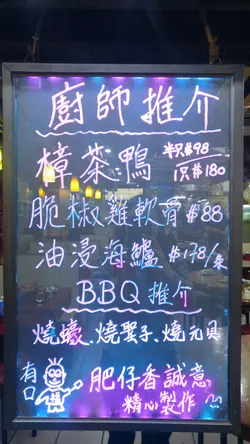 廚師推介
樟茶鴨 半只#98
1只#180
脆椒雞軟骨 #88
油浸海鱸 #178/条
BBQ推介
燒蠔、燒聖子、燒元貝
有 肥仔香誠意
精心製作